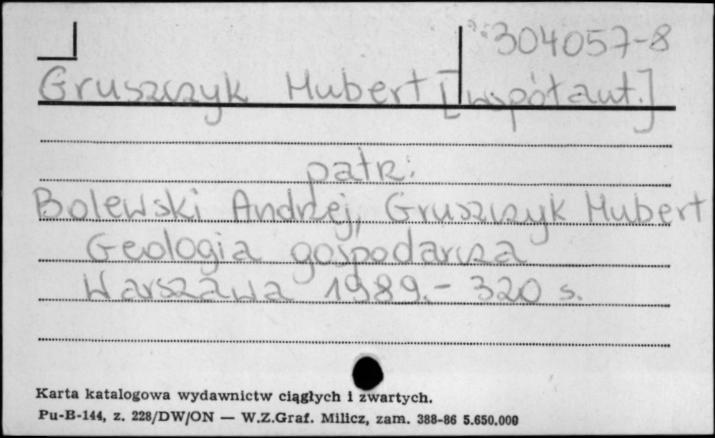 304057-8
Gruszczyk Hubert [współaut.]
patrz:
Bolewski Andrzej, Gruszczyk Hubert
Geologia gospodarcza
Warszawa 1989.- 320 s.
Karta katalogowa wydawnictw ciągłych i zwartych.
Pu-B-144, z. 228/DW/ON — W.Z.Graf. Milicz, zam. 388-86 5.650.000